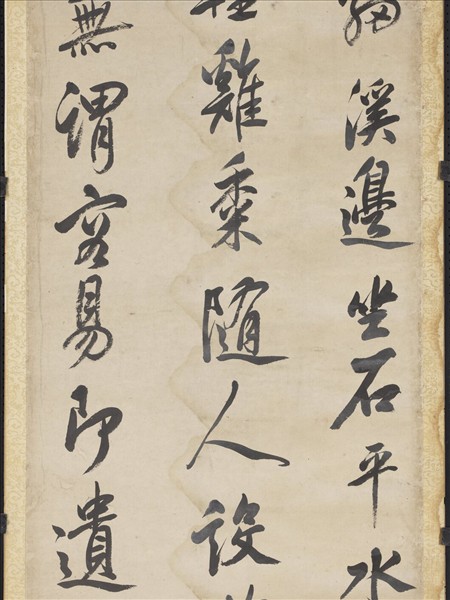 溪邊坐石平水
雞黍隨人設
無謂容易即遺